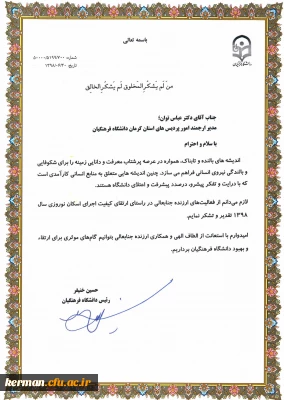 باسمه تعالی
شماره: ۵۰۰۰۰/۵۱۹۹/۲۰۰
تاریخ: ۱۳۹۸/۰۶/۳۰
مَن لَم یَشکُرِ المَخلوق لَم یَشکُرِ الخالِق
جناب آقای دکتر عباس توان؛
مدیر ارجمند امور پردیس های استان کرمان دانشگاه فرهنگیان
با سلام و احترام
اندیشه های بالنده و تابناک، همواره در عرصه پرشتاب معرفت و دانایی زمینه را برای شکوفایی
و بالندگی نیروی انسانی فراهم می سازد. چنین اندیشه هایی متعلق به منابع انسانی کارآمدی است
که با درایت و تفکر پیشرو، درصدد پیشرفت و اعتلای دانشگاه هستند.
لازم می‌دانم از فعالیت‌های ارزنده جنابعالی در راستای ارتقای کیفیت اجرای اسکان نوروزی سال
۱۳۹۸ تقدیر و تشکر نمایم.
امیدوارم با استعانت از الطاف الهی و همکاری ارزنده جنابعالی بتوانیم گام‌های موثری برای ارتقاء
و بهبود دانشگاه فرهنگیان برداریم.
حسین خنیفر
رئیس دانشگاه فرهنگیان
kerman.cfu.ac.ir